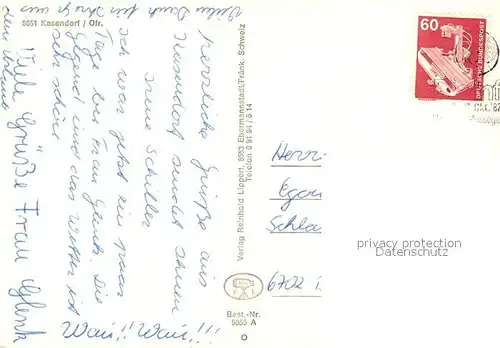 8651 Kasendorf / Ofr.
Vielen Dank für Ihre aus
dem Urlaub
Herzliche Grüße aus
Kasendorf sendet Ihnen
Irene Schiller
Ich war jetzt ein paar
Tage bei Frau Glenk. Die
Gegend und das Wetter ist
sehr schön
Viele Grüße Frau Glenk
Wau!! Wau!!!
Verlag Reinhold Lippert, 8553 Ebermannstadt/Fränk. Schweiz
Telefon 0 91 94 / 5 14
Best.-Nr.
5055 A
60
DEUTSCHE BUNDESPOST
Herrn
Egon
Schla
6702
privacy protection
Datenschutz